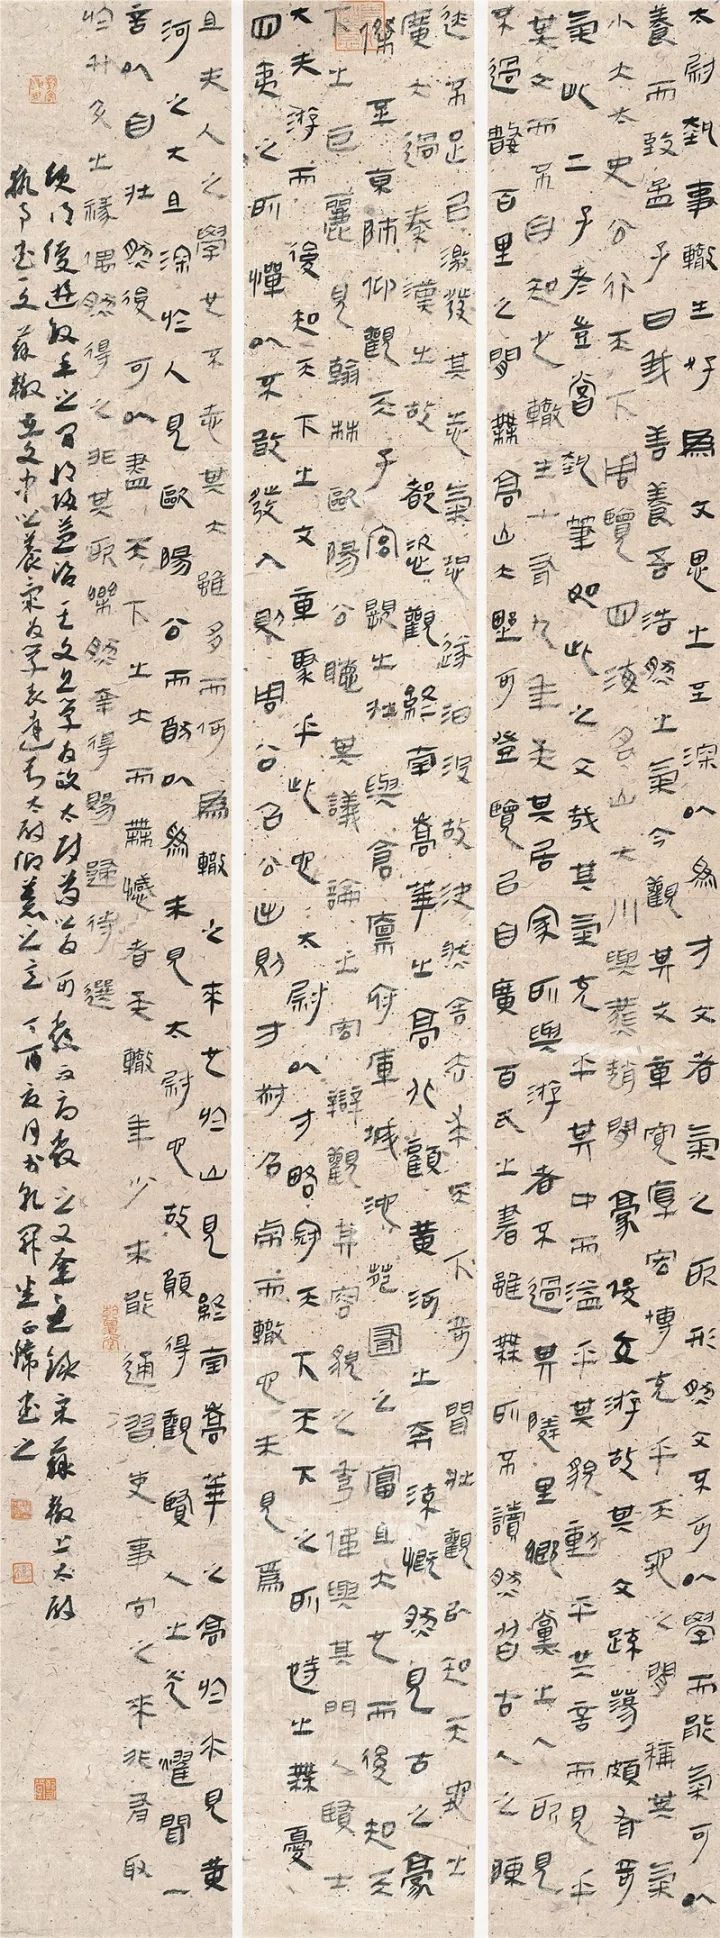 太尉執事轍生好為文思之至深以為才文者氣之所形然文不可以學而能氣可以
養而致孟子曰我善養吾浩然之氣今觀其文章寬厚宏博充乎天地之間稱其氣
小大太史公行天下周覽四海名山大川與燕趙間豪俊交游故其文疏蕩頗有奇
氣此二子者豈嘗執筆如此之文哉其氣充乎其中而溢乎其貌動乎其言而見乎
其文而不自知也轍生十有九年矣其居家所與游者不過其鄰里鄉黨之人所見
不過數百里之間無高山大野可登覽以自廣百氏之書雖無所不讀然皆古人之陳
迹不足以激發其志氣恐遂汩沒故決然舍去求天下奇聞壯觀以知天地之
廣大過秦漢之故都恣觀終南嵩華之高北顧黃河之奔流慨然見古之豪
傑至京師仰觀天子宮闕之壯與倉廩府庫城池苑囿之富且大也而後知天
下之巨麗見翰林歐陽公聽其議論之宏辯觀其容貌之秀偉與其門人賢士
大夫游而後知天下之文章聚乎此也太尉以才略冠天下天下之所恃之無憂
四夷之所憚以不敢發入則周公召公出則方叔召虎而轍也未見焉
且夫人之學也不志其大雖多而何為轍之來也於山見終南嵩華之高於水見黃
河之大且深於人見歐陽公而猶以為未見太尉也故願得觀賢人之光耀聞一
言以自壯然後可以盡天下之大而無憾者矣轍年少未能通習吏事向之來非有取
於升斗之祿偶然得之非其所樂然幸得賜歸待選
使得優游數年之間將益治其文且學為政太尉苟以為可教而辱教之又幸矣錄宋蘇轍上太尉
執事書一文蘇轍文中以養氣為學表達對太尉仰慕之意丁酉夏月書之